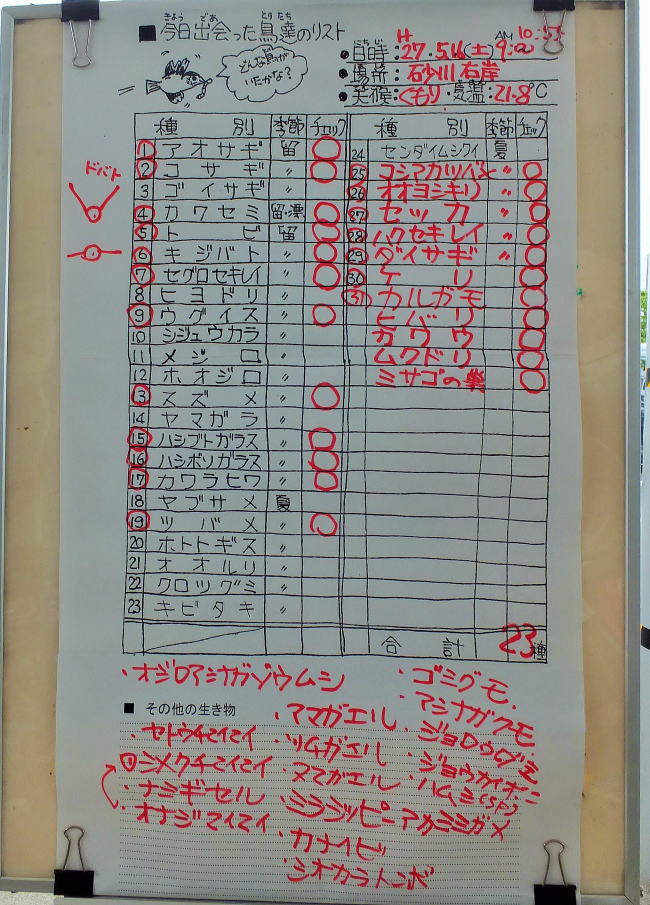 ■今日出会った鳥達のリスト
きょう であ とりたち
どんな鳥がいたかな?
AM 10:55
●日時:H27.5.16(土)9:00
●場所:石砂川右岸
●天候:くもり・気温:21.8℃
種 別 季節 チェック 種 別 季節 チェック
1 アオサギ 留 ○
2 コサギ 〃 ○
3 ゴイサギ 〃
4 カワセミ 留・漂 ○
5 トビ 留 ○
6 キジバト 〃 ○
7 セグロセキレイ 〃 ○
8 ヒヨドリ 〃
9 ウグイス 〃 ○
10 シジュウカラ 〃
11 メジロ 〃
12 ホオジロ 〃
13 スズメ 〃 ○
14 ヤマガラ 〃
15 ハシブトガラス 〃 ○
16 ハシボソガラス 〃 ○
17 カワラヒワ 〃 ○
18 ヤブサメ 夏
19 ツバメ 〃 ○
20 ホトトギス 〃
21 オオルリ 〃
22 クロツグミ 〃
23 キビタキ 〃
24 センダイムシクイ 夏
25 コシアカツバメ 〃 ○
26 オオヨシキリ 〃 ○
27 セッカ 〃 ○
28 ハクセキレイ 〃 ○
29 ダイサギ 〃 ○
30 ケリ ○
31 カルガモ ○
ヒバリ ○
カワウ ○
ムクドリ ○
ミサゴの巣 ○
合 計 23種
ドバト
・オジロアシナガゾウムシ
■ その他の生き物
・セトウチマイマイ
シメクチマイマイ
・ナミギセル
・オナジマイマイ
・アマガエル
・ツチガエル
・ヌマガエル
・ミシシッピーアカミミガメ
・カナヘビ
・シオカラトンボ
・ゴミグモ
・アシナガグモ
・ジョロウグモ
・ジョウカイボン